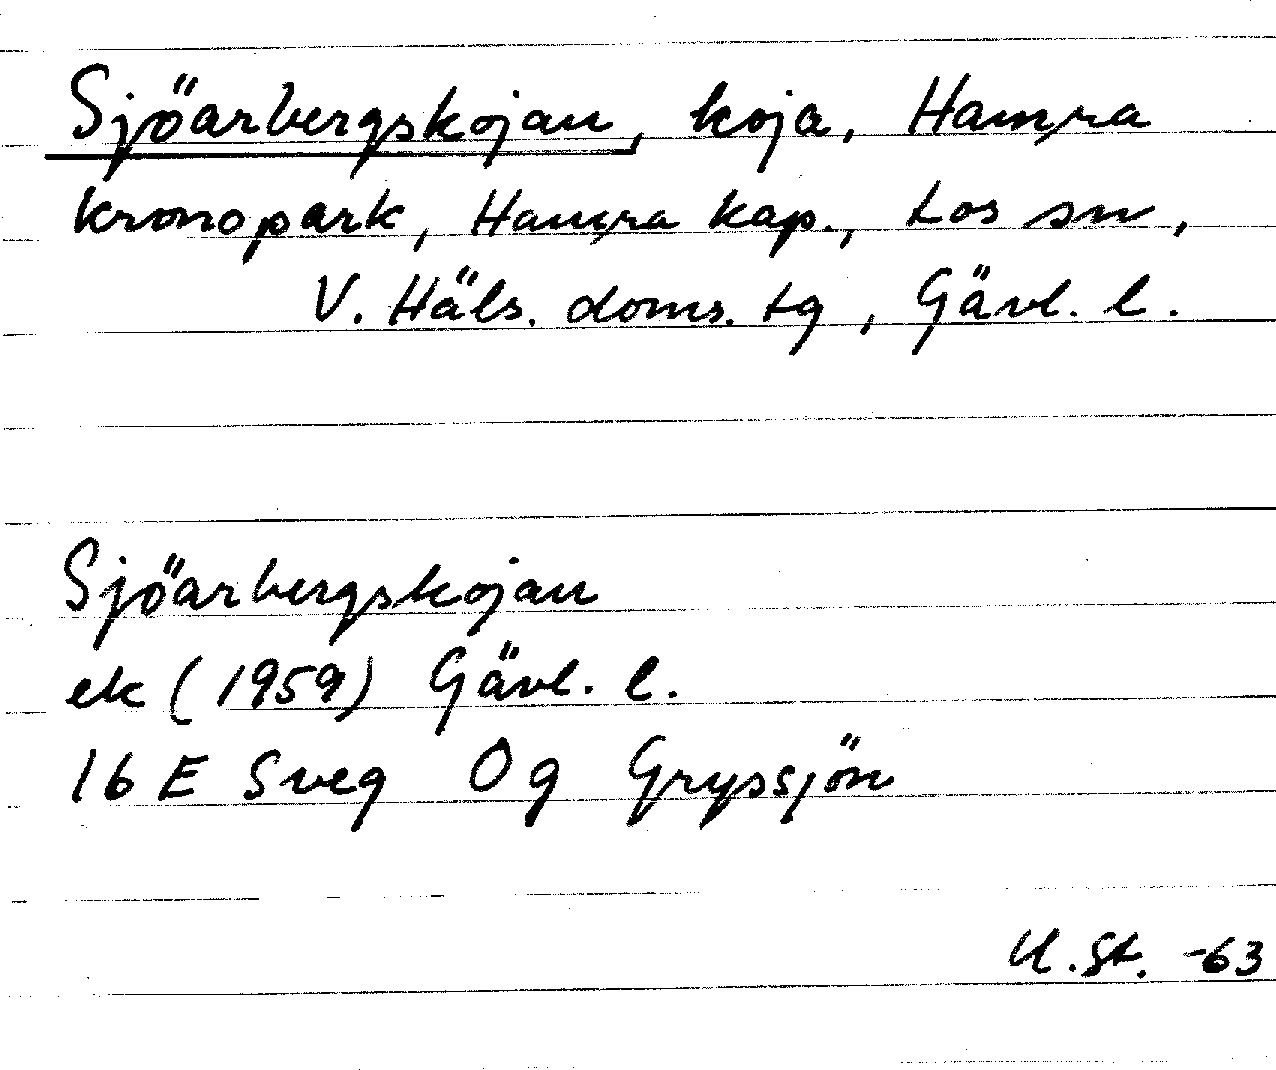 Sjöarbergskojan, koja, Hamra
kronopark, Hamra kap., Los sn,
V. Häls. doms. tg, Gävl. l.
Sjöarbergskojan
ek (1959) Gävl. l.
16 E Sveg 0g Gryssjön
U. St. -63